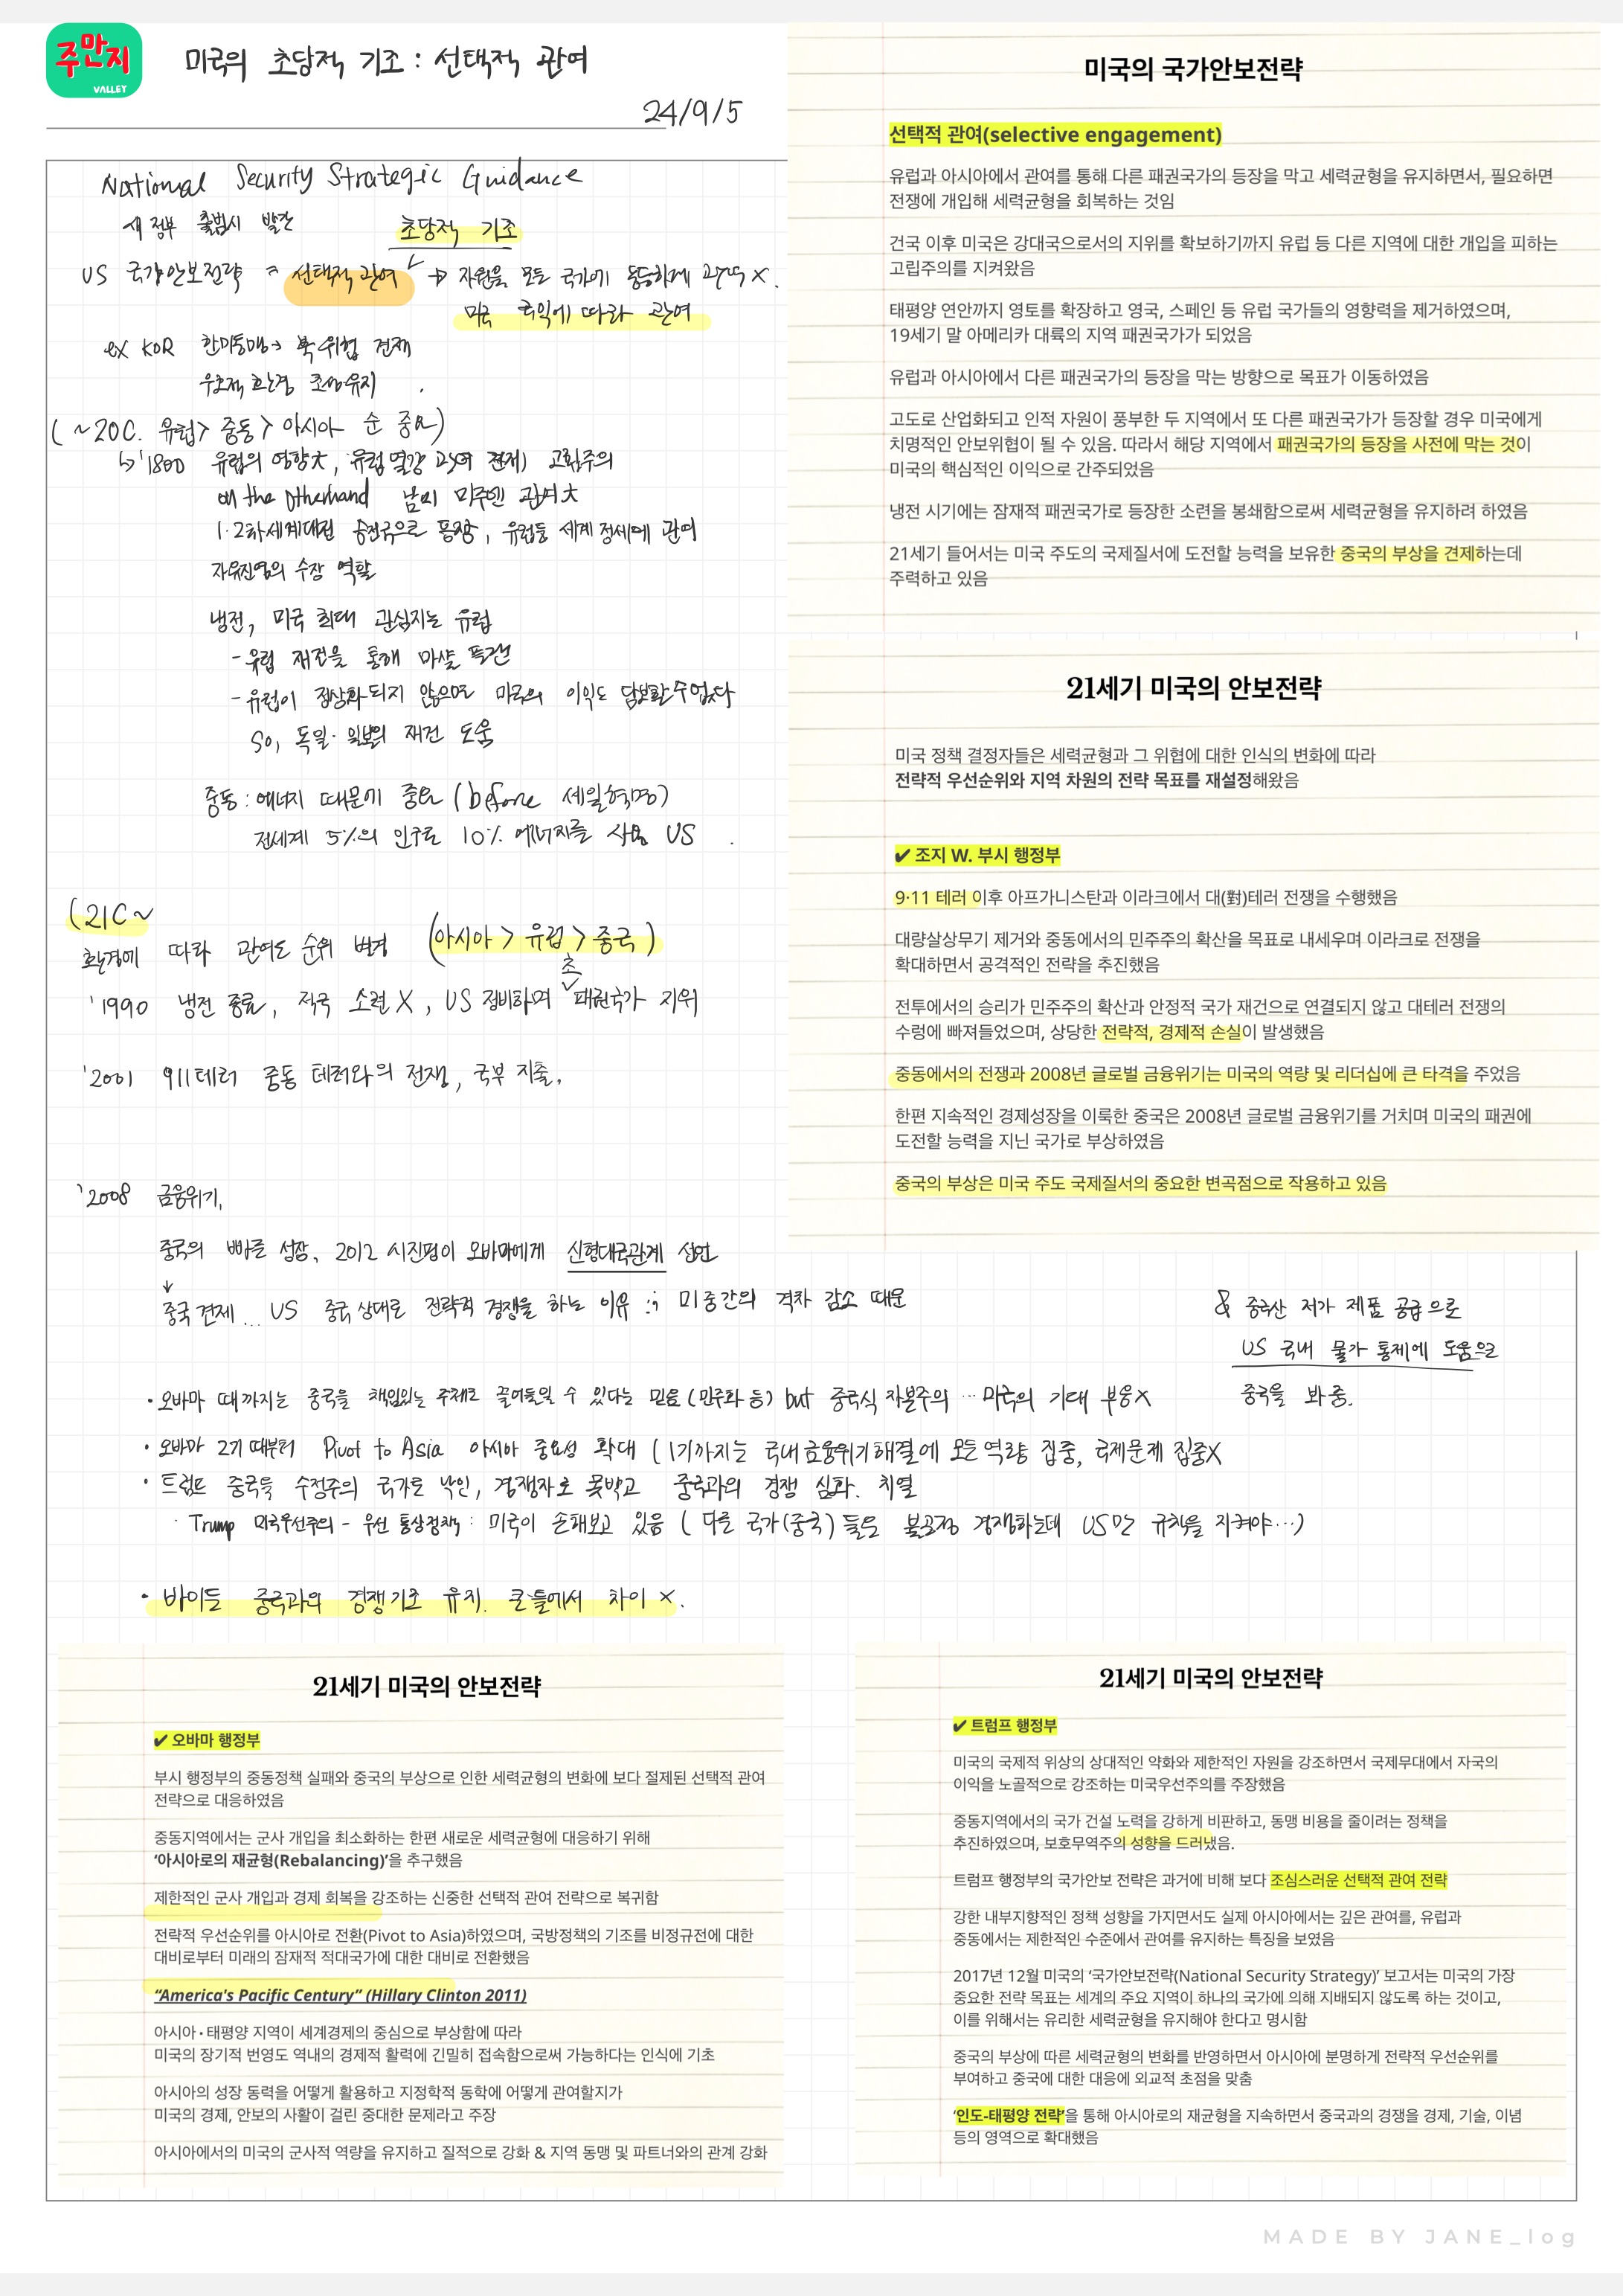 주만지
VALLEY
미국의 초당적 기조 : 선택적 관여
24/9/5
National Security Strategic Guidance
새 정부 출범시 발간
초당적 기조
US 국가안보전략 = 선택적 관여 → 자원을 모든 국가에 동등하게 관여 X.
미국 국익에 따라 관여
ex KOR 한미동맹→ 북 위협 견제
우호적 환경 조성 유지
(~20C. 유럽> 중동 > 아시아 순 중요)
↳'1800 유럽의 영향大, 유럽 열강 관여 견제) 고립주의
on the otherhand 남미 미주엔 관여大
1·2차세계대전 승전국으로 등장, 유럽등 세계 정세에 관여
자유진영의 수장 역할
냉전, 미국 최대 관심지는 유럽
- 유럽 재건을 통해 마샬 플랜
- 유럽이 정상화 되지 않으면 미국의 이익도 담보할수없다
So, 독일·일본의 재건 도움
중동 : 에너지 때문에 중요 (before 셰일혁명)
전세계 5%의 인구로 10% 에너지를 사용 US .
(21C~
환경에 따라 관여도 순위 변경 (아시아 > 유럽 > 중국)
초
'1990 냉전 종료, 적국 소련 X, US 정비하며 패권국가 지위
'2001 911테러 중동 테러와의 전쟁, 국부 지출.
'2008 금융위기,
중국의 빠른 성장, 2012 시진핑이 오바마에게 신형대국관계 선언
↓
중국 견제... US 중국 상대로 전략적 경쟁을 하는 이유 ;; 미중간의 격차 감소 때문
& 중국산 저가 제품 공급으로
US 국내 물가 통제에 도움으로
중국을 봐 줌.
• 오바마 때까지는 중국을 책임있는 주체로 끌어들일 수 있다는 믿음 (민주화 등) but 중국식 자본주의 ... 미국의 기대 부응X
• 오바마 2기 때부터 Pivot to Asia 아시아 중요성 확대 (1기까지는 국내 금융위기 해결에 모든 역량 집중, 국제문제 집중X
• 트럼프 중국을 수정주의 국가로 낙인, 경쟁자로 못박고 중국과의 경쟁 심화. 치열
· Trump 미국우선주의 - 우선 통상정책 : 미국이 손해보고 있음 (다른 국가(중국)들은 불공정 경쟁하는데 US만 규칙을 지켜야...)
• 바이든 중국과의 경쟁기조 유지. 큰 틀에서 차이 X.
미국의 국가안보전략
선택적 관여(selective engagement)
유럽과 아시아에서 관여를 통해 다른 패권국가의 등장을 막고 세력균형을 유지하면서, 필요하면
전쟁에 개입해 세력균형을 회복하는 것임
건국 이후 미국은 강대국으로서의 지위를 확보하기까지 유럽 등 다른 지역에 대한 개입을 피하는
고립주의를 지켜왔음
태평양 연안까지 영토를 확장하고 영국, 스페인 등 유럽 국가들의 영향력을 제거하였으며,
19세기 말 아메리카 대륙의 지역 패권국가가 되었음
유럽과 아시아에서 다른 패권국가의 등장을 막는 방향으로 목표가 이동하였음
고도로 산업화되고 인적 자원이 풍부한 두 지역에서 또 다른 패권국가가 등장할 경우 미국에게
치명적인 안보위협이 될 수 있음. 따라서 해당 지역에서 패권국가의 등장을 사전에 막는 것이
미국의 핵심적인 이익으로 간주되었음
냉전 시기에는 잠재적 패권국가로 등장한 소련을 봉쇄함으로써 세력균형을 유지하려 하였음
21세기 들어서는 미국 주도의 국제질서에 도전할 능력을 보유한 중국의 부상을 견제하는데
주력하고 있음
21세기 미국의 안보전략
미국 정책 결정자들은 세력균형과 그 위협에 대한 인식의 변화에 따라
전략적 우선순위와 지역 차원의 전략 목표를 재설정해왔음
✔ 조지 W. 부시 행정부
9·11 테러 이후 아프가니스탄과 이라크에서 대(對)테러 전쟁을 수행했음
대량살상무기 제거와 중동에서의 민주주의 확산을 목표로 내세우며 이라크로 전쟁을
확대하면서 공격적인 전략을 추진했음
전투에서의 승리가 민주주의 확산과 안정적 국가 재건으로 연결되지 않고 대테러 전쟁의
수렁에 빠져들었으며, 상당한 전략적, 경제적 손실이 발생했음
중동에서의 전쟁과 2008년 글로벌 금융위기는 미국의 역량 및 리더십에 큰 타격을 주었음
한편 지속적인 경제성장을 이룩한 중국은 2008년 글로벌 금융위기를 거치며 미국의 패권에
도전할 능력을 지닌 국가로 부상하였음
중국의 부상은 미국 주도 국제질서의 중요한 변곡점으로 작용하고 있음
21세기 미국의 안보전략
✔ 오바마 행정부
부시 행정부의 중동정책 실패와 중국의 부상으로 인한 세력균형의 변화에 보다 절제된 선택적 관여
전략으로 대응하였음
중동지역에서는 군사 개입을 최소화하는 한편 새로운 세력균형에 대응하기 위해
‘아시아로의 재균형(Rebalancing)’을 추구했음
제한적인 군사 개입과 경제 회복을 강조하는 신중한 선택적 관여 전략으로 복귀함
전략적 우선순위를 아시아로 전환(Pivot to Asia)하였으며, 국방정책의 기조를 비정규전에 대한
대비로부터 미래의 잠재적 적대국가에 대한 대비로 전환했음
“America's Pacific Century” (Hillary Clinton 2011)
아시아·태평양 지역이 세계경제의 중심으로 부상함에 따라
미국의 장기적 번영도 역내의 경제적 활력에 긴밀히 접속함으로써 가능하다는 인식에 기초
아시아의 성장 동력을 어떻게 활용하고 지정학적 동학에 어떻게 관여할지가
미국의 경제, 안보의 사활이 걸린 중대한 문제라고 주장
아시아에서의 미국의 군사적 역량을 유지하고 질적으로 강화 & 지역 동맹 및 파트너와의 관계 강화
21세기 미국의 안보전략
✔ 트럼프 행정부
미국의 국제적 위상의 상대적인 약화와 제한적인 자원을 강조하면서 국제무대에서 자국의
이익을 노골적으로 강조하는 미국우선주의를 주장했음
중동지역에서의 국가 건설 노력을 강하게 비판하고, 동맹 비용을 줄이려는 정책을
추진하였으며, 보호무역주의 성향을 드러냈음.
트럼프 행정부의 국가안보 전략은 과거에 비해 보다 조심스러운 선택적 관여 전략
강한 내부지향적인 정책 성향을 가지면서도 실제 아시아에서는 깊은 관여를, 유럽과
중동에서는 제한적인 수준에서 관여를 유지하는 특징을 보였음
2017년 12월 미국의 ‘국가안보전략(National Security Strategy)’ 보고서는 미국의 가장
중요한 전략 목표는 세계의 주요 지역이 하나의 국가에 의해 지배되지 않도록 하는 것이고,
이를 위해서는 유리한 세력균형을 유지해야 한다고 명시함
중국의 부상에 따른 세력균형의 변화를 반영하면서 아시아에 분명하게 전략적 우선순위를
부여하고 중국에 대한 대응에 외교적 초점을 맞춤
‘인도-태평양 전략’을 통해 아시아로의 재균형을 지속하면서 중국과의 경쟁을 경제, 기술, 이념
등의 영역으로 확대했음
MADE BY JANE_log